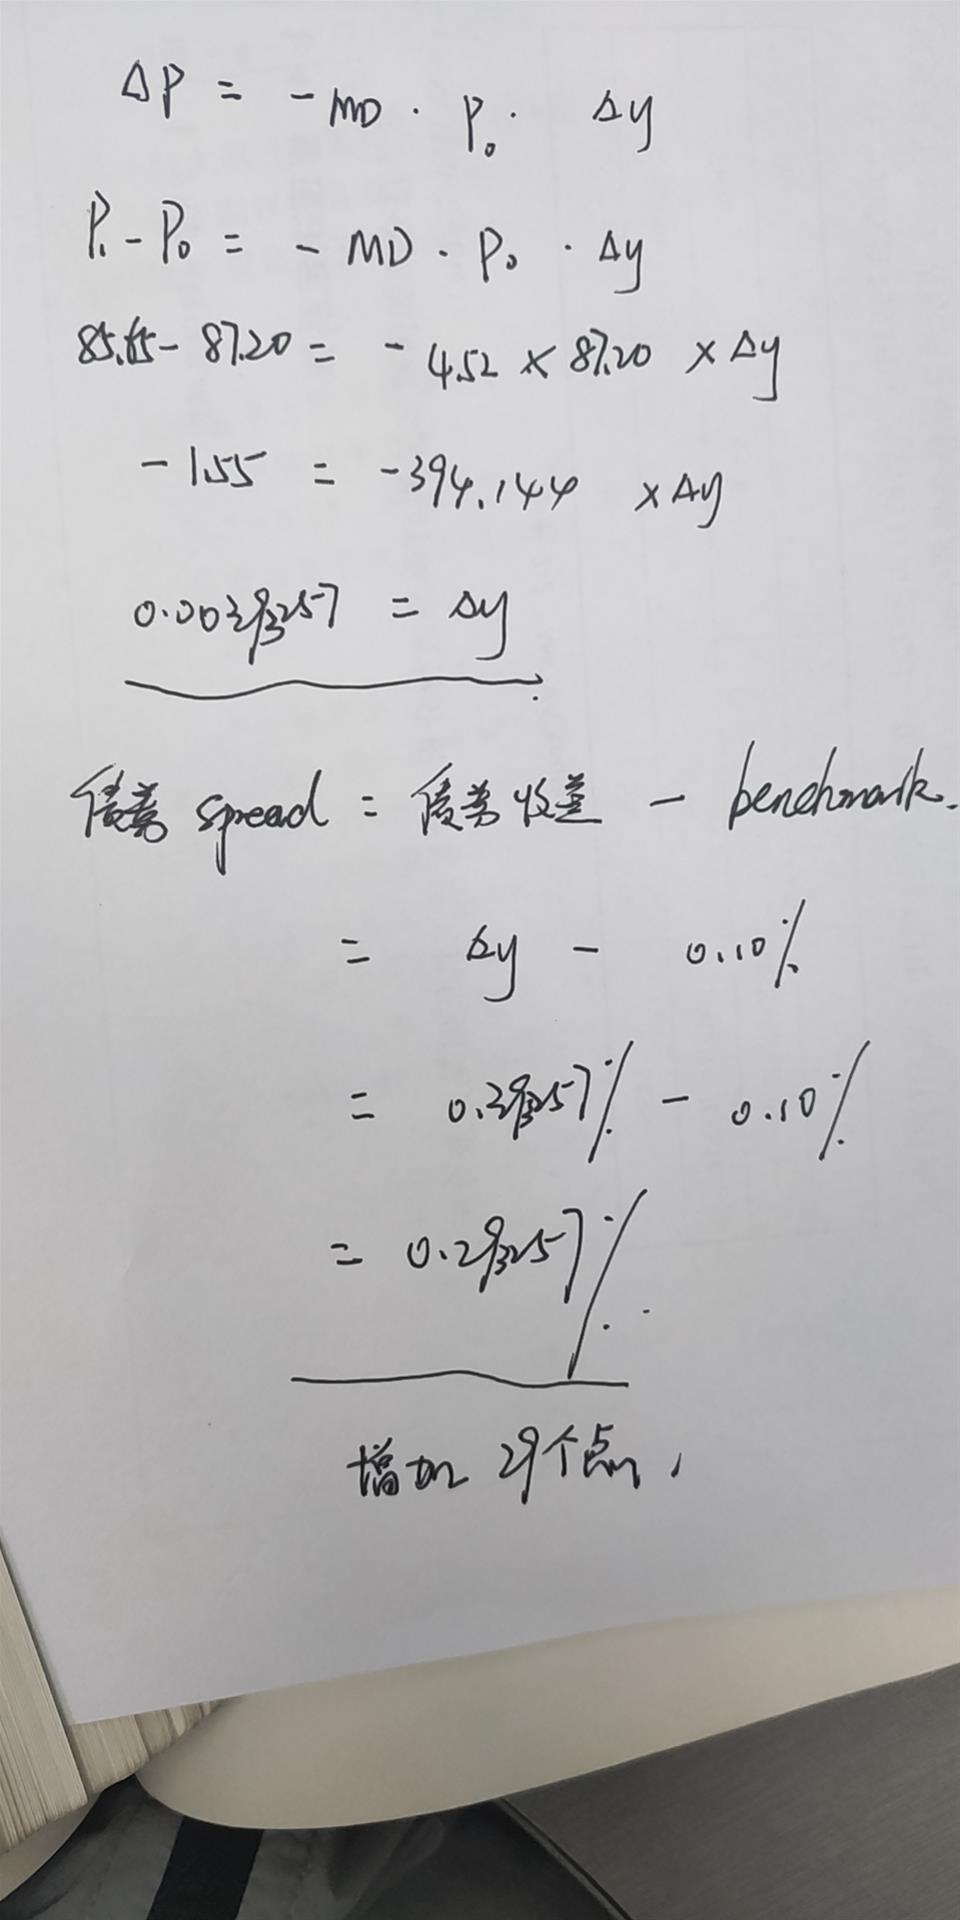 ΔP = - MD · P₀ · Δy
P₁ - P₀ = - MD · P₀ · Δy
85.65 - 87.20 = - 4.52 × 87.20 × Δy
- 1.55 = - 394.144 × Δy
0.00393257 = Δy
债券 spread = 债券收益 - benchmark.
= Δy - 0.10%
= 0.393257% - 0.10%
= 0.293257%
增加 29个点,